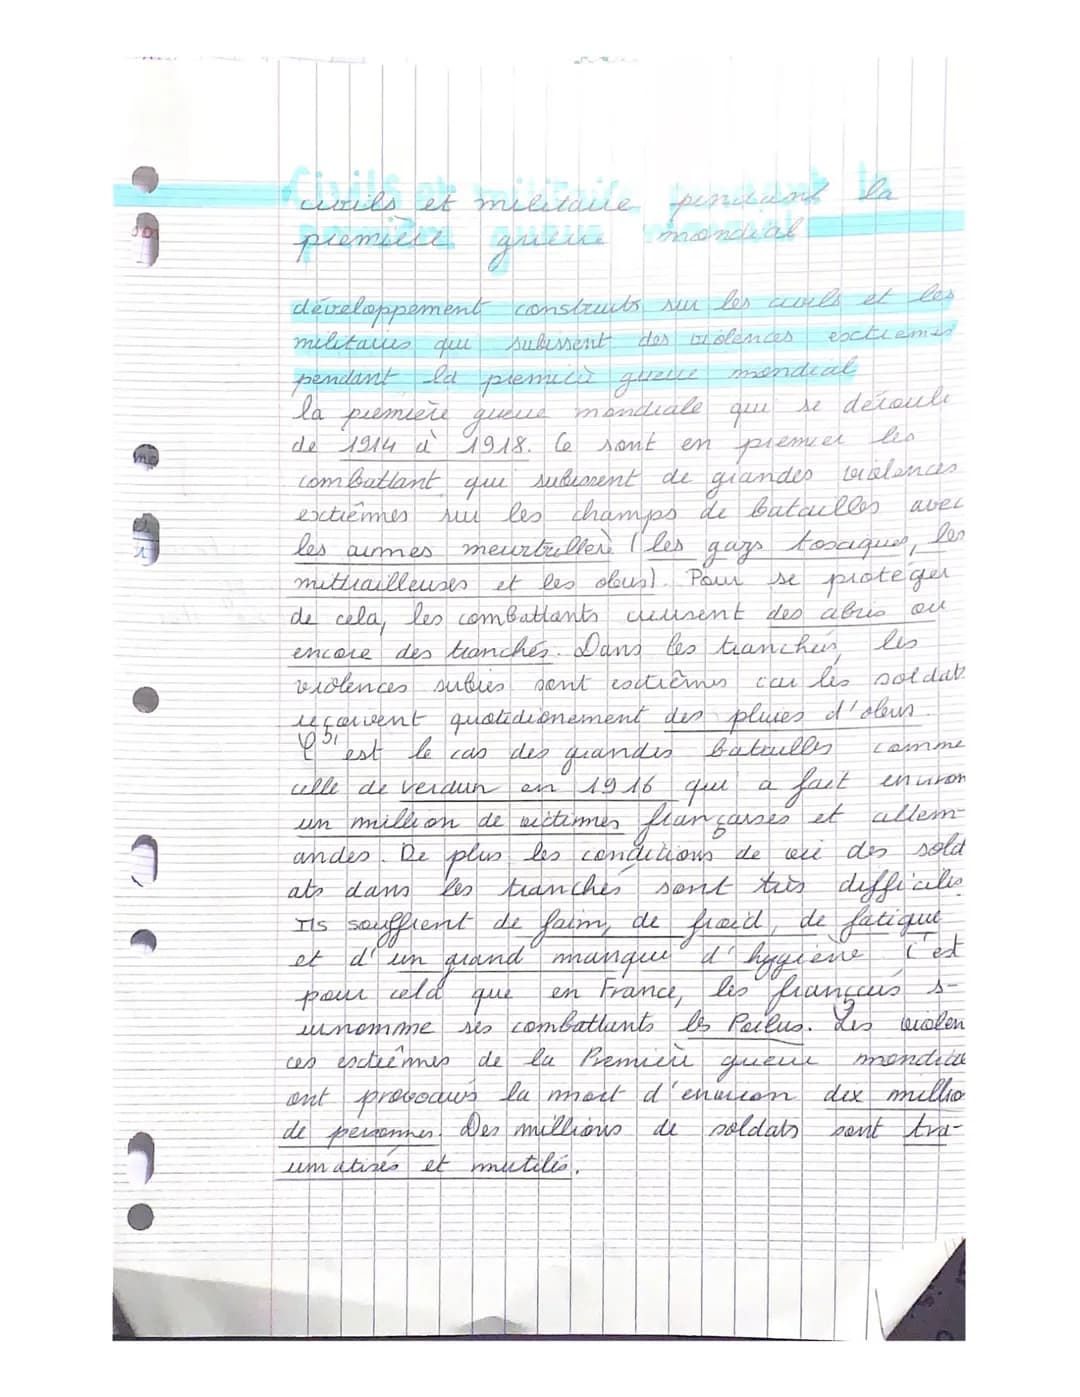 civils et militaire pendant la
première guerre mondial
développement construits sur les civils et les
militaires qui subissent des violences extrêmes
pendant la première guerre mondial
la première guerre mondiale qui se déroule
de 1914 à 1918. Ce sont en premier les
combattant qui subissent de grandes violences
extrêmes sur les champs de batailles avec
les armes meurtrières (les gazs toxiques, les
mitrailleuses et les obus). Pour se protéger
de cela, les combattants creusent des abris ou
encore des tranchés. Dans les tranchées, les
violences subies sont extrêmes car les soldats
reçoivent quotidionement des pluies d'obus.
C'est le cas des grandes batailles comme
celle de verdun en 1916 qui a fait environ
un million de victimes françaises et allem-
andes. De plus les conditions de vie des sold
ats dans les tranchés sont très difficiles
Ils souffrent de faim, de froid, de fatigue
et d'un grand manque d'hygiène. C'est
pour cela que en France, les français s-
urnomme ses combattants les Poilus. Les violen
ces extrêmes de la Première guerre mondiale
ont provoqués la mort d'environ dix millio
de personnes. Des millions de soldats sont tra-
umatisés et mutilés.